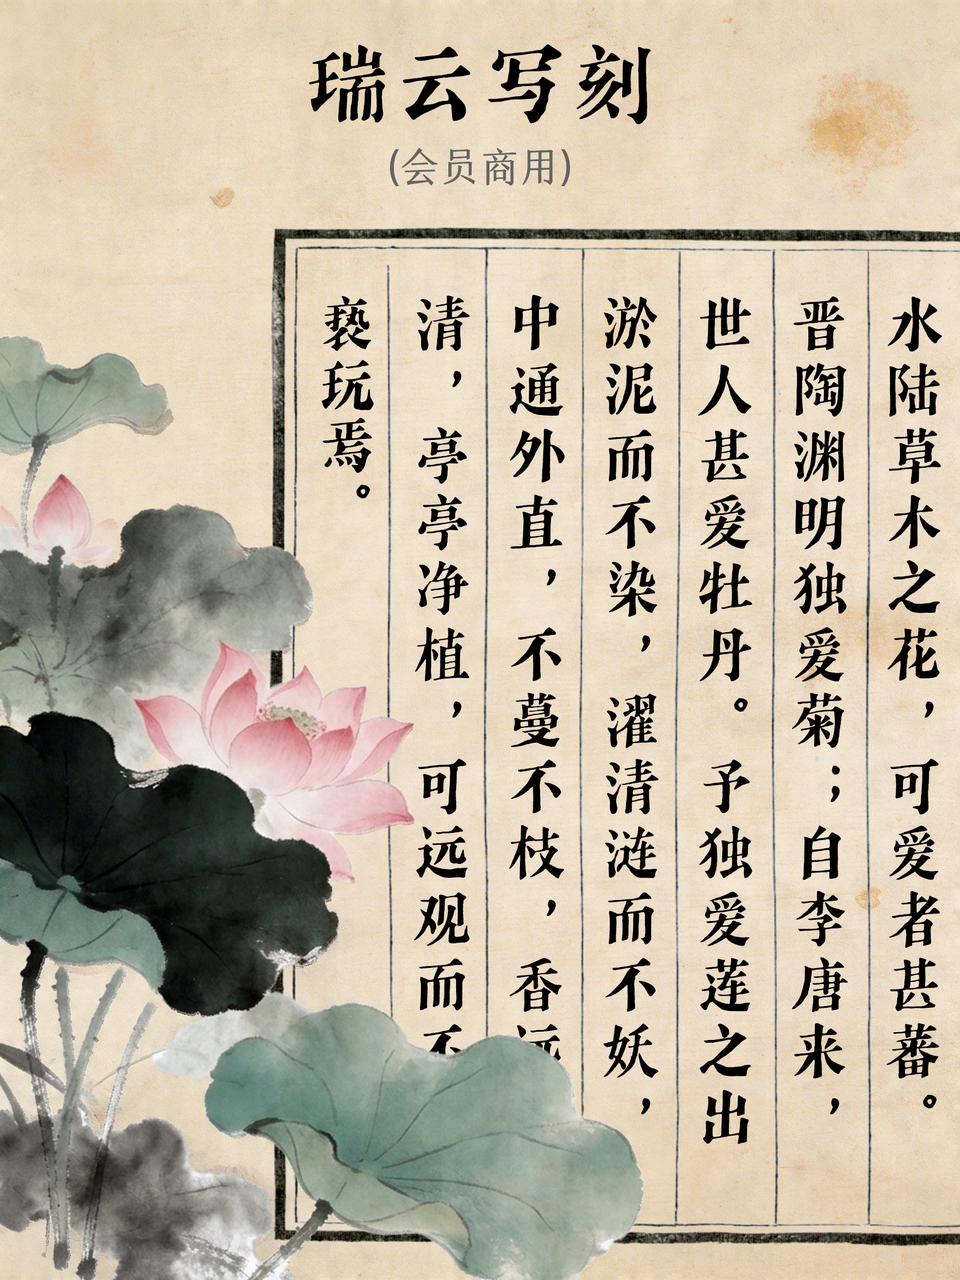 瑞云写刻
(会员商用)
水陆草木之花，可爱者甚蕃。
晋陶渊明独爱菊；自李唐来，
世人甚爱牡丹。予独爱莲之出
淤泥而不染，濯清涟而不妖，
中通外直，不蔓不枝，香远
清，亭亭净植，可远观而不
亵玩焉。